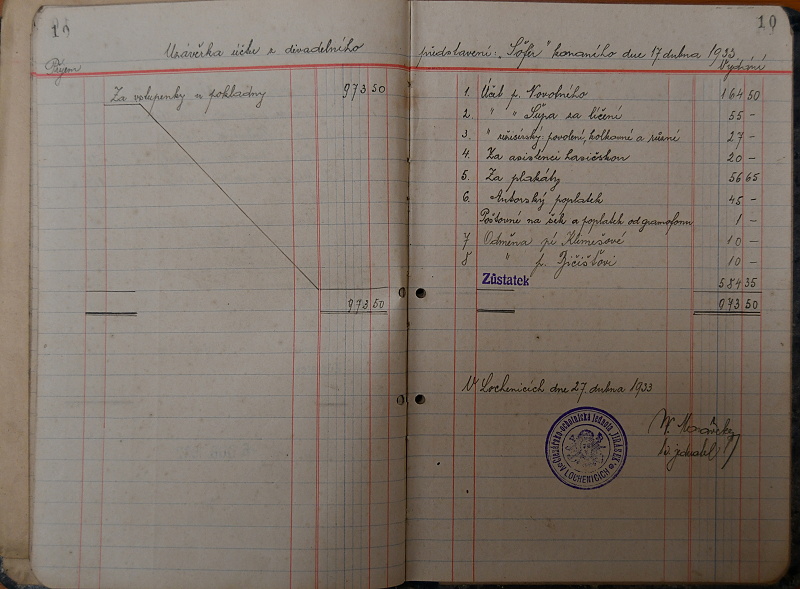 19
19
Uzávěrka účtu z divadelního představení: "Šofér" konaného dne 17 dubna 1933
Příjem
Vydání
Za vstupenky u pokladny 973 50
973 50
1. Účet p. Novotného 164 50
2. " " Šůpa za líčení 55 -
3. " režisérský: povolení, kolkovné a různé 27 -
4. Za asistenci hasičskou 20 -
5. Za plakáty 56 65
6. Autorský poplatek 45 -
Poštovné na šek a poplatek od gramofonu 1 -
7 Odměna pí 10 -
8 " p. 10 -
Zůstatek 584 35
973 50
V Lochenicích dne 27. dubna 1933
Čtenářsko-ochotnická jednota JIRÁSEK v LOCHENICÍCH
t. č. jednatel